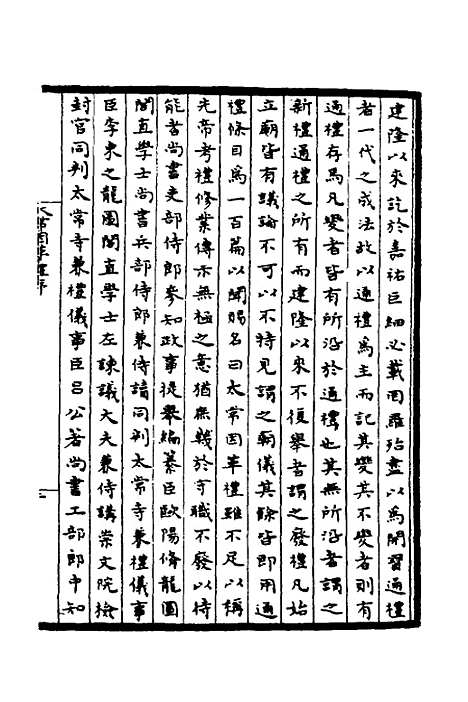 建隆以來訖於嘉祐巨細必載罔羅殆盡以為開寶通禮
者一代之成法故以通禮為主而記其變其不變者則有
通禮存焉凡變者皆有所沿於通禮也其無所沿者謂之
新禮通禮之所有而建隆以來不復舉者謂之廢禮凡始
立廟皆有議論不可以不特見謂之廟儀其餘皆即用通
禮條目為一百篇以聞賜名曰太常因革禮雖不足以稱
先帝考禮修業傳示無極之意猶無戲於守職不廢以待
能者尚書吏部侍郎參知政事提舉編纂臣歐陽修龍圖
閣直學士尚書兵部侍郎兼侍讀同判太常寺兼禮儀事
臣李柬之龍圖閣直學士左諫議大夫兼侍講崇文院檢
封官同判太常寺兼禮儀事臣呂公著尚書工部郎中知
太常因革禮序